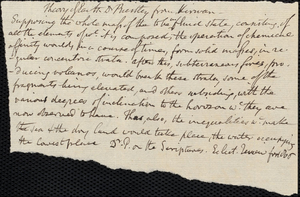 Theory of earth Dr Priestley from Kirwan
Supposing the whole mass of the in the fluid state, consisting of
all the elements of wh. it is composed, the operation of chemical
affinity would, in a course of time, form solid masses, in re-
gular concentric strata. after this, subterraneous fires, pro-
ducing volcanos, would break these strata, some of the
fragments being elevated, and others subsiding, with the
various degrees of inclination to the horison wh. they are
now observed to have. Thus, also, the inequalities wh. make
the sea & the dry land would take place, the water occupying
the lowest place Dr. P. on the Scriptures. Eclect. Review for